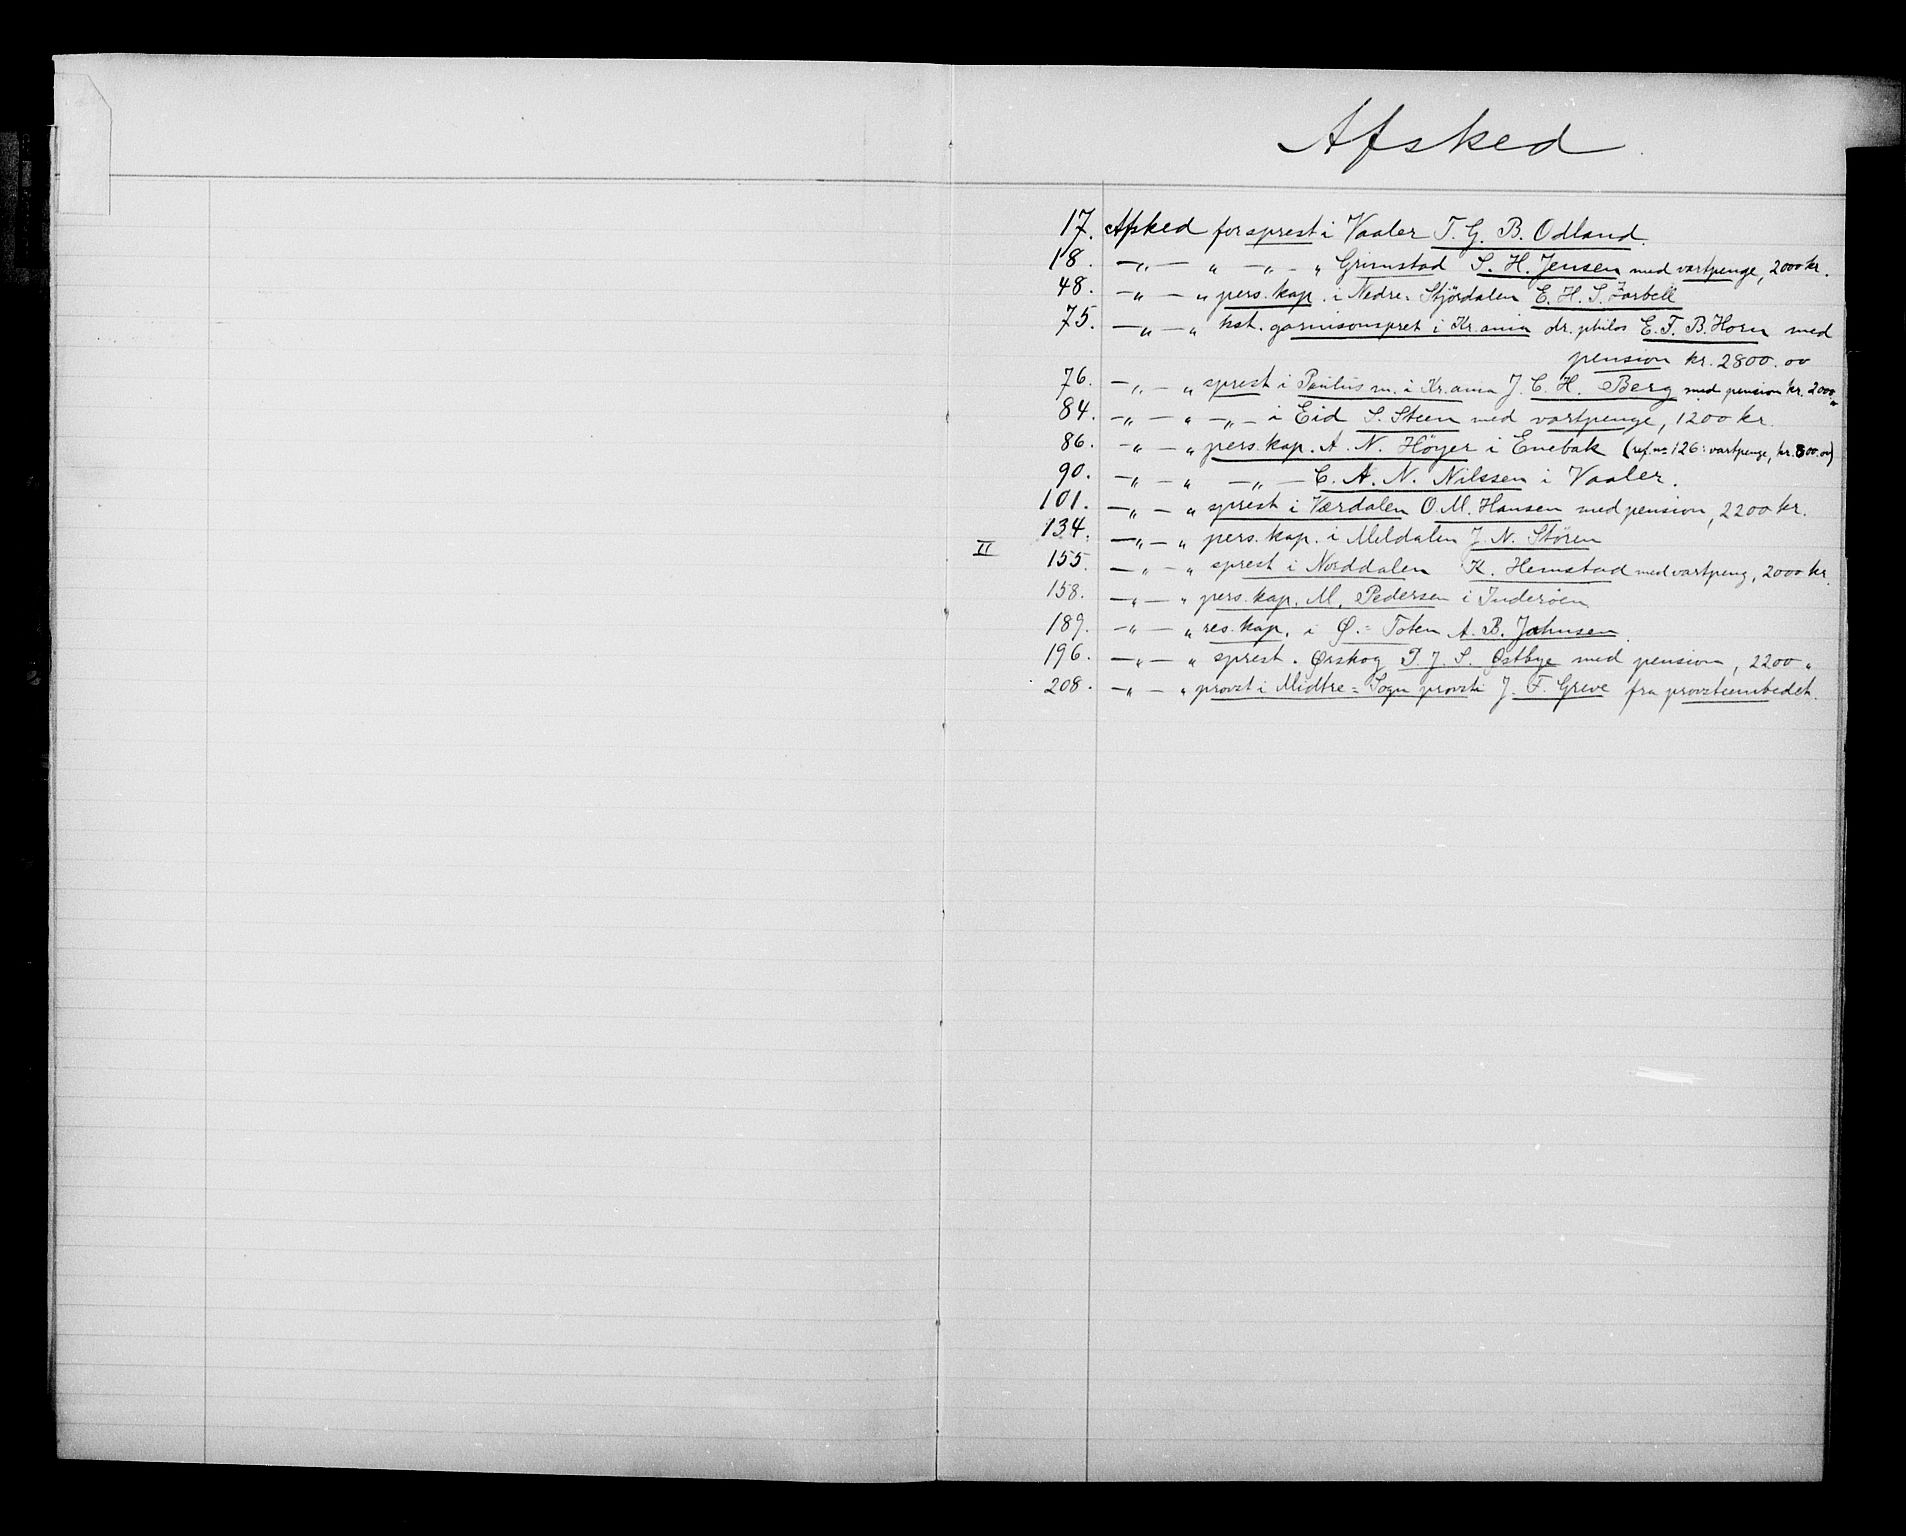 Afsked
17. Afsked for sprest i Vaaler T. G. B. Odland.
18. —„— „ —„— „ Grimstad S. H. Jensen med vartpenge, 2000 kr.
48. —„— „ pers. kap. i Nedre-Stjördalen E. H. S.
75. —„— „ kst. garnisonsprest i Kr.ania dr. philos E. F. B. Horn med
pension kr. 2800.00
76. —„— „ sprest i Paulus m. i Kr.ania J. C. H. Berg med pension kr. 2000„
84. —„— „ —„— i Eid S. Steen med vartpenge, 1200 kr.
86. —„— „ pers. kap. A. N. Höyer i Enebak (ref. no 126: vartpenge, kr. 800.00)
90. —„— „ —„— C. A. N. Nilssen i Vaaler.
101. —„— „ sprest i Værdalen O. M. Hansen med pension, 2200 kr.
134. —„— „ pers. kap. i Meldalen J. N. Stören
II 155. —„— „ sprest i Norddalen K. Hemstad med vartpeng, 2000 kr.
158. —„— „ pers. kap. M. Pedersen i Inderöen
189. —„— „ res. kap. i Ø.= Toten A. B. Johnsen.
196. —„— „ sprest. Ørskog P. J. S. Østbye med pension, 2200 „
208. —„— „ provst i Midtre=Sogn provsti J. F. Greve fra provstiembedet.